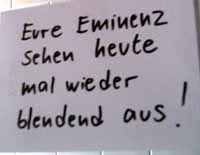 Eure Eminenz
sehen heute
mal wieder
blendend aus!